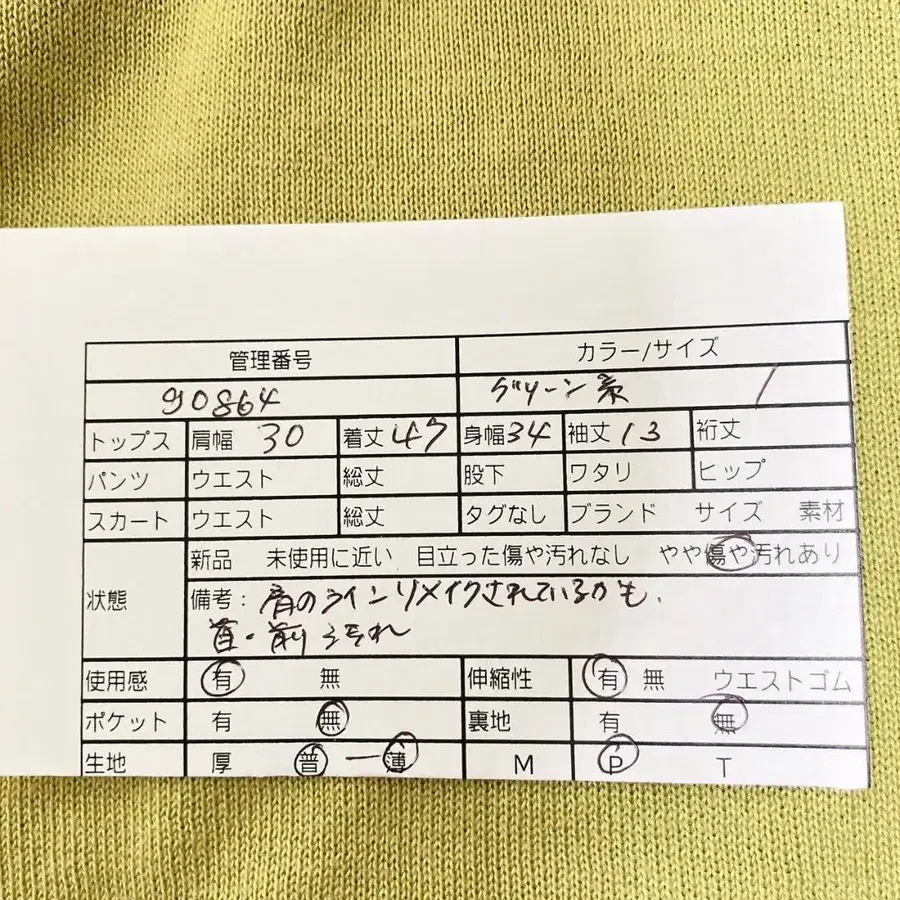 管理番号 カラー/サイズ
90864 グリーン系 /
トップス 肩幅 30 着丈 47 身幅 34 袖丈 13 裄丈
パンツ ウエスト 総丈 股下 ワタリ ヒップ
スカート ウエスト 総丈 タグなし ブランド サイズ 素材
状態 新品 未使用に近い 目立った傷や汚れなし やや傷や汚れあり
備考: 肩のラインリメイクされているかも、
首・前 汚れ
使用感 有 無 伸縮性 有 無 ウエストゴム
ポケット 有 無 裏地 有 無
生地 厚 普 ー 薄 M P T